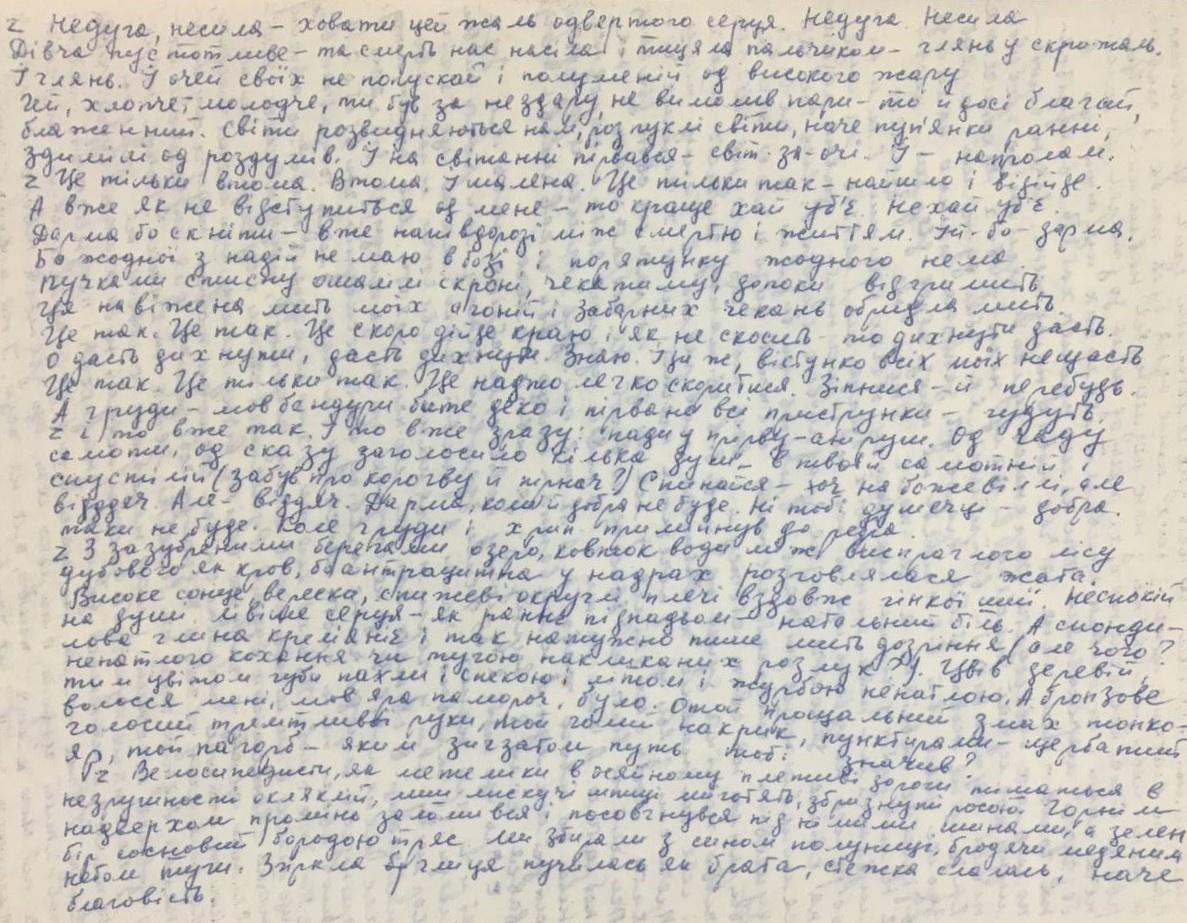 z Недуга, несила – ховати цей жаль одвертого серця. Недуга. Несила
Дівча пустотливе – та смерть нас насіла і тицяла пальчиком – глянь у скрижаль.
І глянь. І очей своїх не попускай і полуменій од високого жару
Гей, хлопче, молодче, ти був за нездару, не вимолив пари – то й досі благай,
блаженний. Світи розвидняються нам, розпуклі світи, наче пуп'янки ранні,
здимілі од роздумів. І на світанні пірвався – світ-за-очі. І – напролам.
z Це тільки втома. Втома. І малена. Це тільки так – найшло і відійде.
А вже як не відступиться од мене – то краще хай уб'є. Нехай уб'є.
Дарма бо скніти – вже напівдорозі між смертю і життям. Їй-бо – дарма.
Бо жодної з надій не маю в бозі і порятунку жодного нема.
пучками стисну ошалілі скроні, чекатиму, допоки відгримить
ця навіжена мить моїх агоній і забарних чекань обридла мить.
Це так. Це так. Це скоро дійде краю і як не скосить – то дихнути дасть.
О дасть дихнути, дасть дихнути. Знаю. Іди ж, вістунко всіх моїх нещасть
Це так. Це тільки так. Це надто легко скоритися. Зіпнися – й перебудь.
А груди – мов бандури битe деко і пірвані всі приструнки – гудуть
z і то вже так. І то вже зразу: пади у прірву – антруш. Од чаду
самоти, од сказу заголосило кілька душ – в твоїй самотній і
спустілій (забув про корогву й пірнач?) Спинайся – хоч на божевіллі, але
віддяч. Але – віддяч. Дарма, коли й добра не буде. Ні тобі, душечці – добра.
таки не буде. Коле груди і хрип прилинув до ребра.
z З зазубреними берегами озеро, ковток води між висмаглого лісу
дубового як кров, бо антрацитна у надрах розговлялася жага.
Високе сонце вереска, спижеві округлі плечі вздовж гінкої шиї. Неспокій
на душі. Мвіле серця – як раннє піднадьом – натольний біль. А спонди-
лова глина кремяніє і так натужно пише мить дозріння (але чого?
ненатлого кохання чи тугою накликаних розлук?). Цвів деревій,
тим цвітом губи пахли і спекою, літом і журбою ненатлою. А бронзове
волосся мені, мов яра паморок, було. Отой прощальний змах тонко-
голосий тремтливої руки, той голий накрик, пунктирами – щербатий
яр, той пагорб – яким зигзагом путь тобі значив?
z Велосипедисти, як метелики в осяйному плетиві дороги пнаться в
незрушності окляклій, лиш лискучі шпиці миготять, збризнуті росою. Горнім
надверхом промінь заломився і посовгнувся під німими шинами, а зелен
бір сосновий бородою тряс. Ми збирали з сином полуниці, бродячи медяним
небом тучи. Зіркла брчниця пучилась як брата, стежка слалась, наче
благовість.